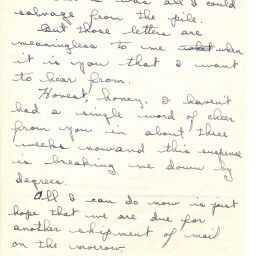 was all I could
salvage from the pile.
But those letters are
meaningless to me what when
it is you that I want
to hear from.
Honest, honey, I haven't
had a single word of cheer
from you in about three
weeks now and this suspense
is breaking me down by
degrees.
All I can do now is just
hope that we are due for
another shipment of mail
on the morrow.